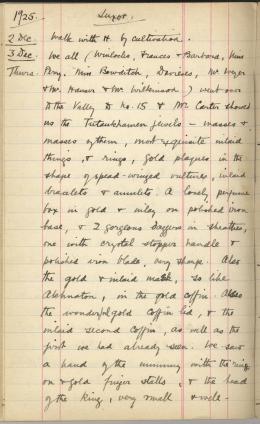 1925. Luxor.
2 Dec. Walk with N. by cultivation.
3 Dec. We all (Winlocks, Frances & Barbara, Miss
Thurs. Perry, Miss Bowditch, Davieses, Mr.
& Mr. Hauser & Mr. Wilkinson) went over
to the Valley to No. 15 & Mr. Carter showed
us the Tutankhamen jewels – masses &
masses of them, most exquisite inlaid
things, & rings, gold plaques in the
shape of spread-winged vultures, inlaid
bracelets & amulets. A lovely perfume
box in gold & inlay on polished
base, & 2 gorgeous daggers in sheaths,
one with crystal stopper handle &
polished iron blade, very sharp. Also
the gold & inlaid mask, so like
Akhnaton, in the gold coffin. Also
the wonderful gold coffin lid, & the
inlaid second coffin, as well as the
first we had already seen. We saw
a hand of the mummy with the rings
on & gold finger stalls, & the head
of the King, very small & well-